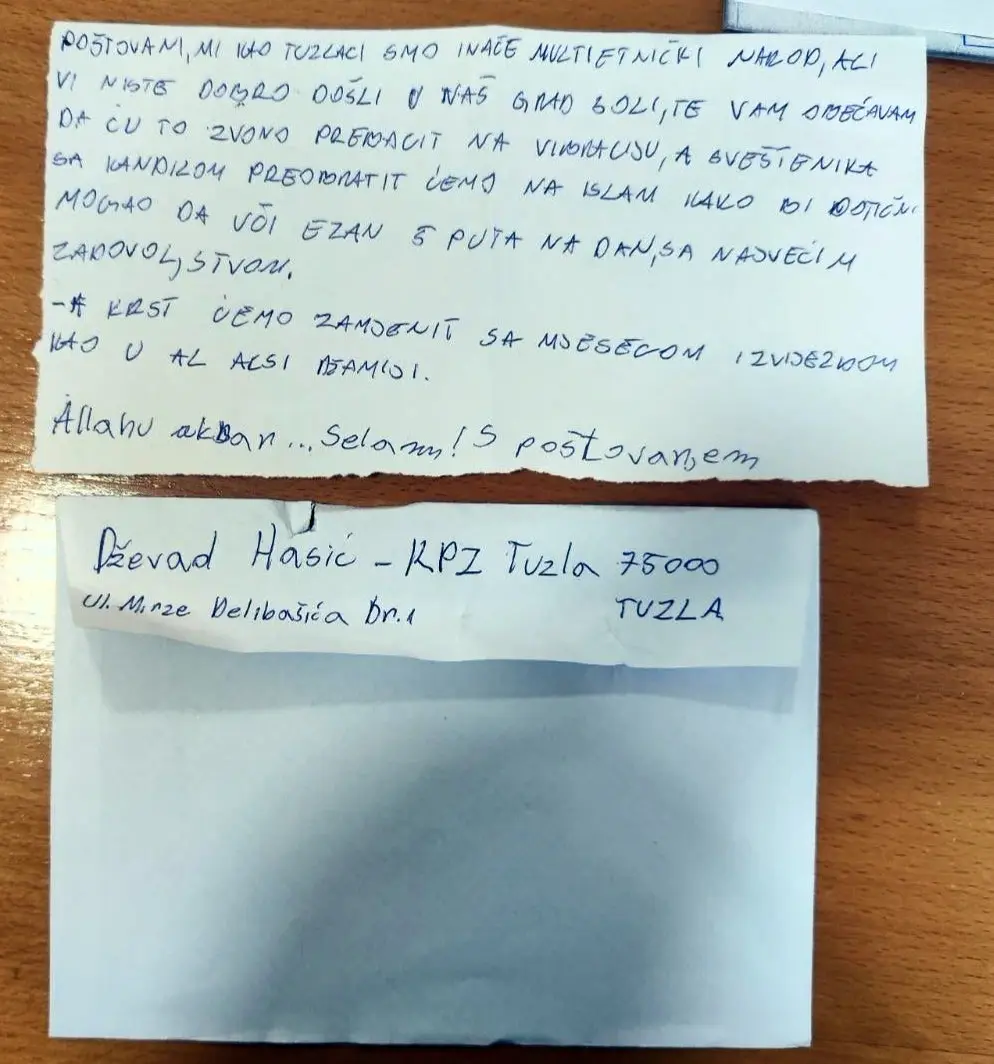 POŠTOVANI, MI KAO TUZLACI SMO INAČE MULTIETNIČKI NAROD, ALI
VI NISTE DOBRO DOŠLI U NAŠ GRAD SOLI, TE VAM OBEĆAVAM
DA ĆU TO ZVONO PREBACIT NA VIBRACIJU, A SVEŠTENIKA
SA KANDILOM PREOBRATIT ĆEMO NA ISLAM KAKO BI DOTIČNI
MOGAO DA UČI EZAN 5 PUTA NA DAN, SA NAJVEĆIM
ZADOVOLJSTVOM.
- A KRST ĆEMO ZAMJENIT SA MJESECOM I ZVIJEZDOM
KAO U AL AKSI DŽAMIJI.
Allahu akbar... Selam! S poštovanjem
Dževad Hasić - KPZ Tuzla 75000
Ul. Mirze Delibašića Br. 1 TUZLA